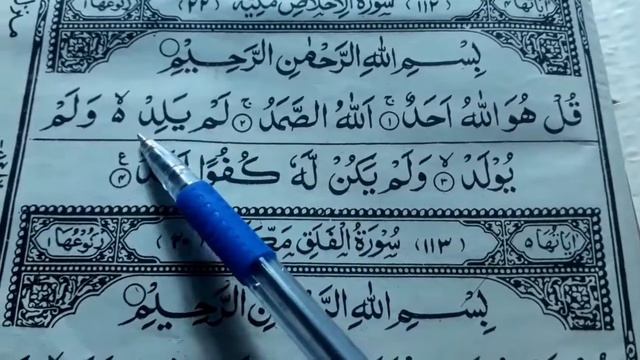 (١١٢) سُوْرَةُ الْاِخْلَاصِ مَكِّيَّةٌ (٢٢)
بِسْمِ اللهِ الرَّحْمٰنِ الرَّحِيْمِ
قُلْ هُوَ اللهُ اَحَدٌ ۚ ١ اَللهُ الصَّمَدُ ۚ ٢ لَمْ يَلِدْ ۙ٥ وَلَمْ
يُوْلَدْ ۙ ٣ وَلَمْ يَكُنْ لَّهٗ كُفُوًا ٤ ع
اٰيَاتُهَا ٥ (١١٣) سُوْرَةُ الْفَلَقِ (٢٠) رُكُوْعُهَا ١
بِسْمِ اللهِ الرَّحِيْمِ